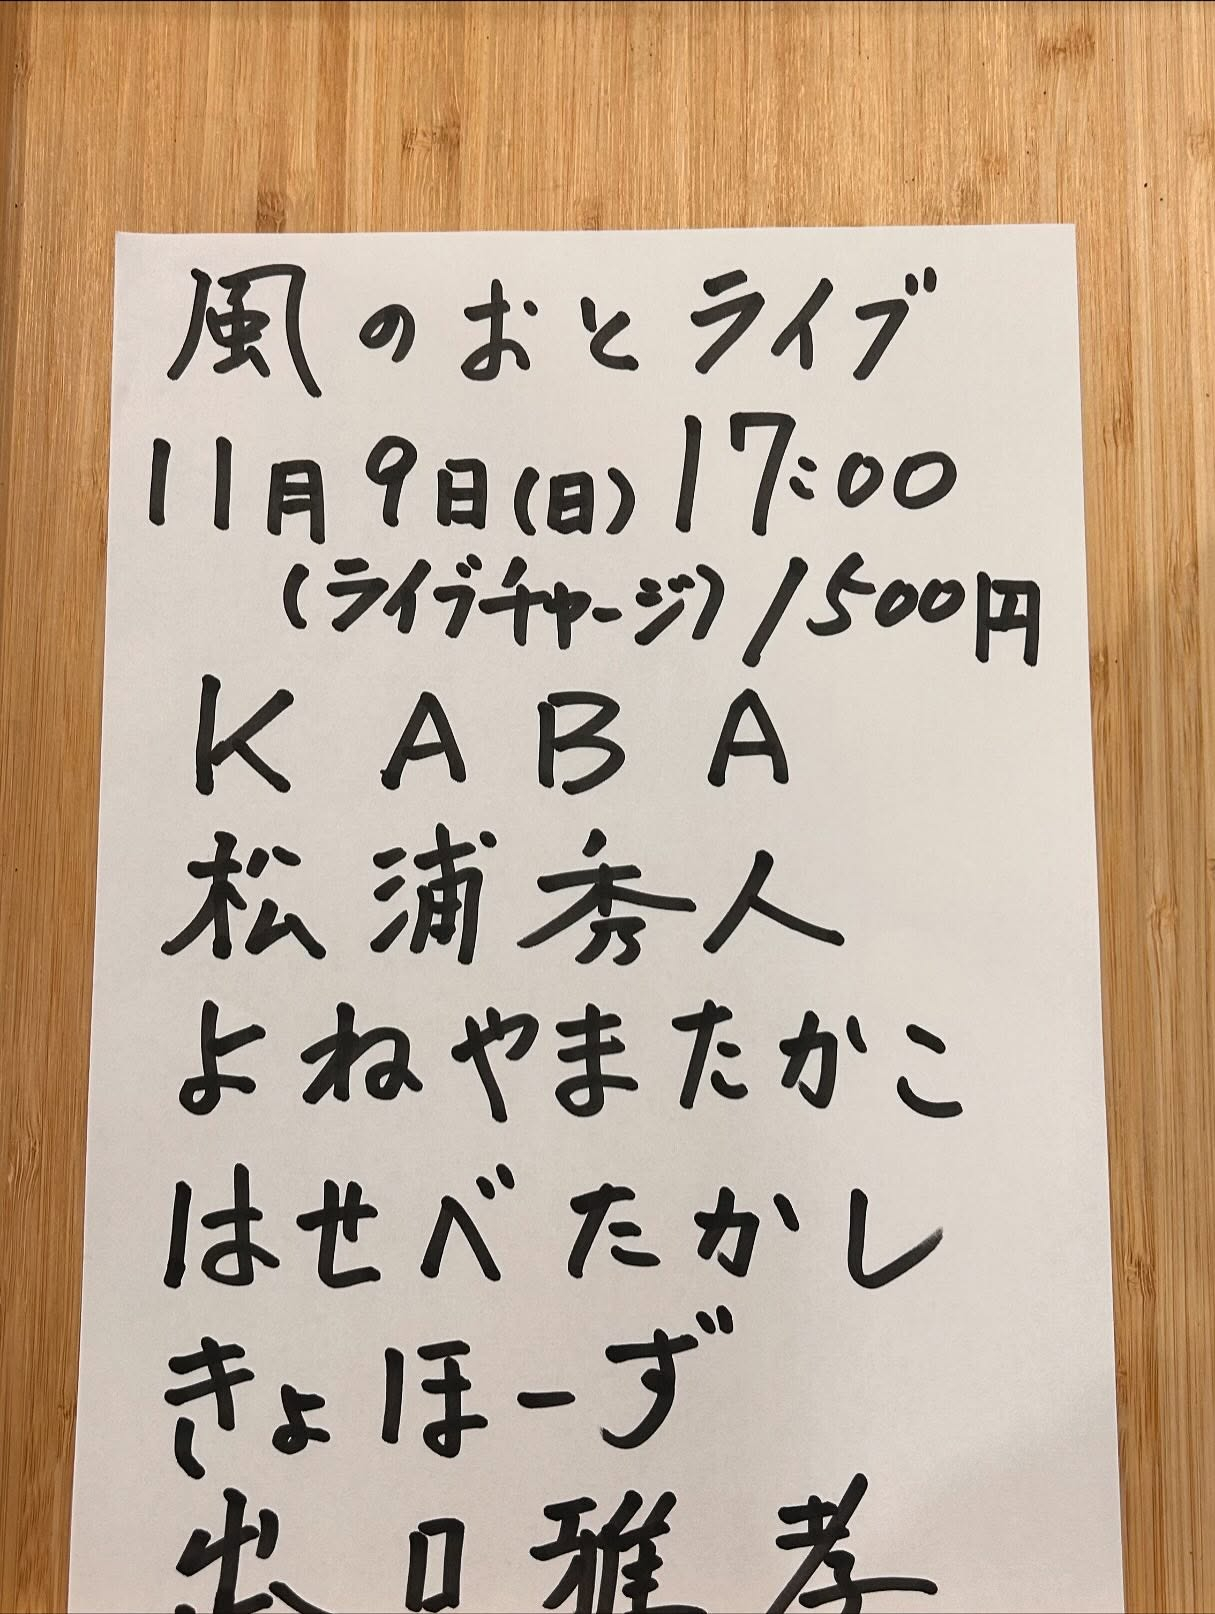 風のおとライブ
11月9日(日) 17:00
(ライブチャージ) 1500円
KABA
松浦秀人
よねやまたかこ
はせべたかし
きょほーず
出口雅孝